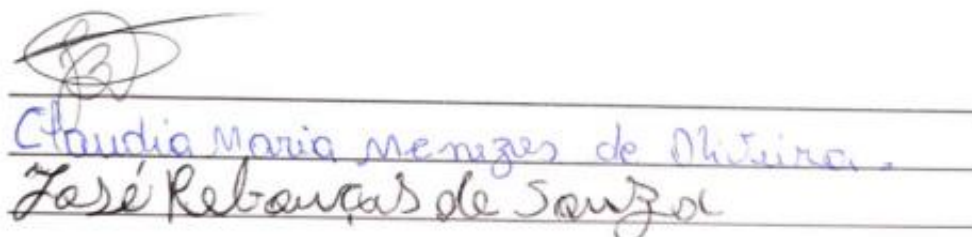 Claudia Maria Menezes de Oliveira.
José Rebouças de Souza